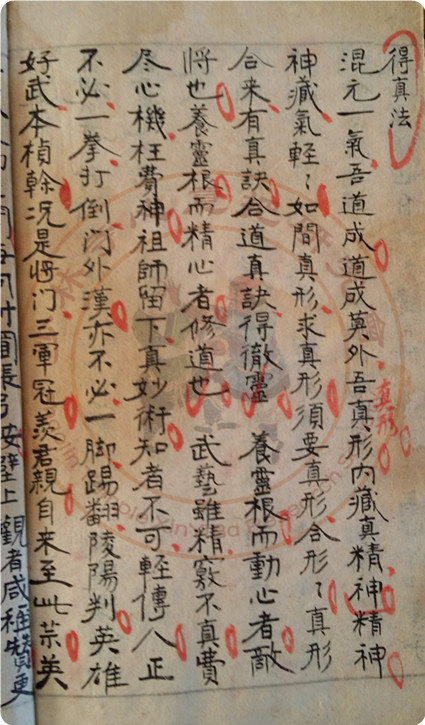 得真法
混元一氣吾道成道成莫外吾真形内藏真精神精神
真形
神藏氣輕々如間真形求真形須要真形合形々真形
合来有真訣合道真訣得徹靈 養靈根而動心者敵
將也養靈根而精心者修道也 武藝雖精竅不真費
尽心機枉費神祖師留下真妙術知者不可輕傳人正
不必一拳打倒门外漢亦不必一脚踢翻陵陽判英雄
好武本楨榦况是將门三軍冠羡君親自来至此荥英
張弓安壁上觀者咸稱贊更